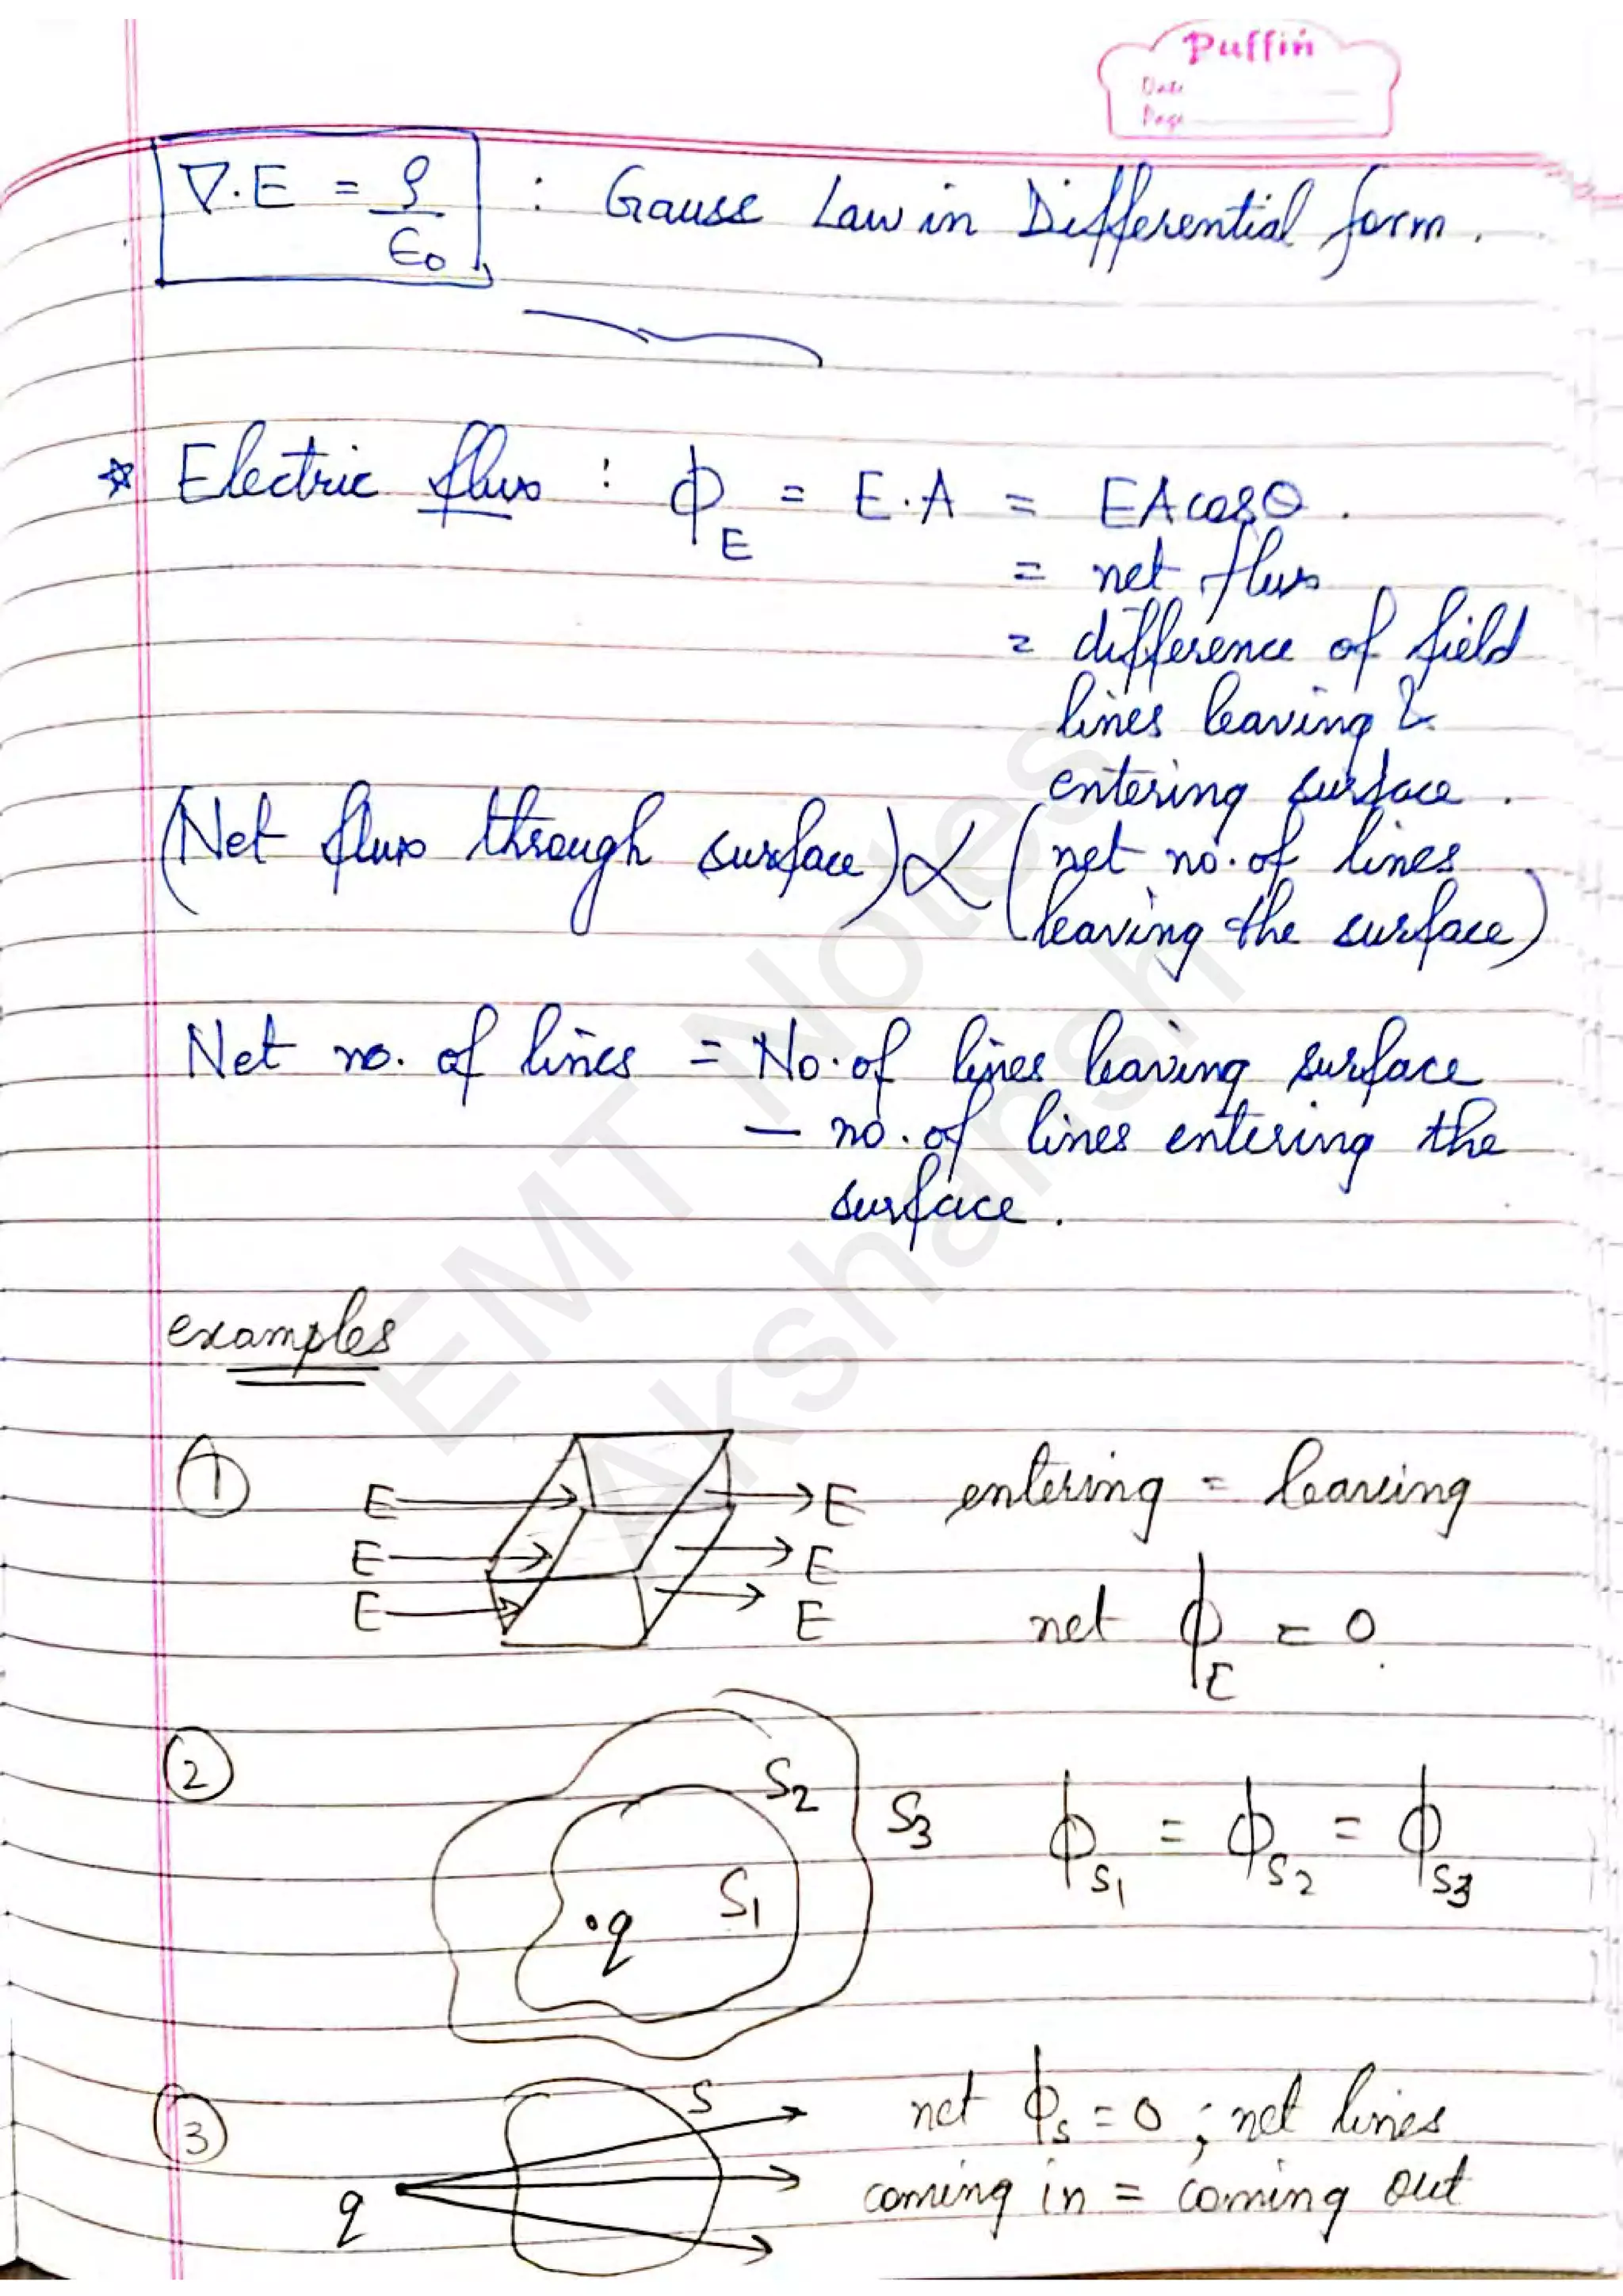 Puffin
Date
Page
∇.E = ρ/ε0 : Gauss Law in Differential form.
☆ Electric flux : ϕE = E.A = EA cosθ.
= net flux
= difference of field
lines leaving &
entering surface.
(Net flux through surface) ∝ (net no. of lines
leaving the surface)
Net no. of lines = No. of lines leaving surface
— no. of lines entering the
surface.
examples
① E E entering = leaving
E E
E E net ϕE = 0.
② S2 S3 ϕS1 = ϕS2 = ϕS3
S1
.q
③ S net ϕs = 0 ; net lines
q coming in = coming out
EMT Notes
Akshansh